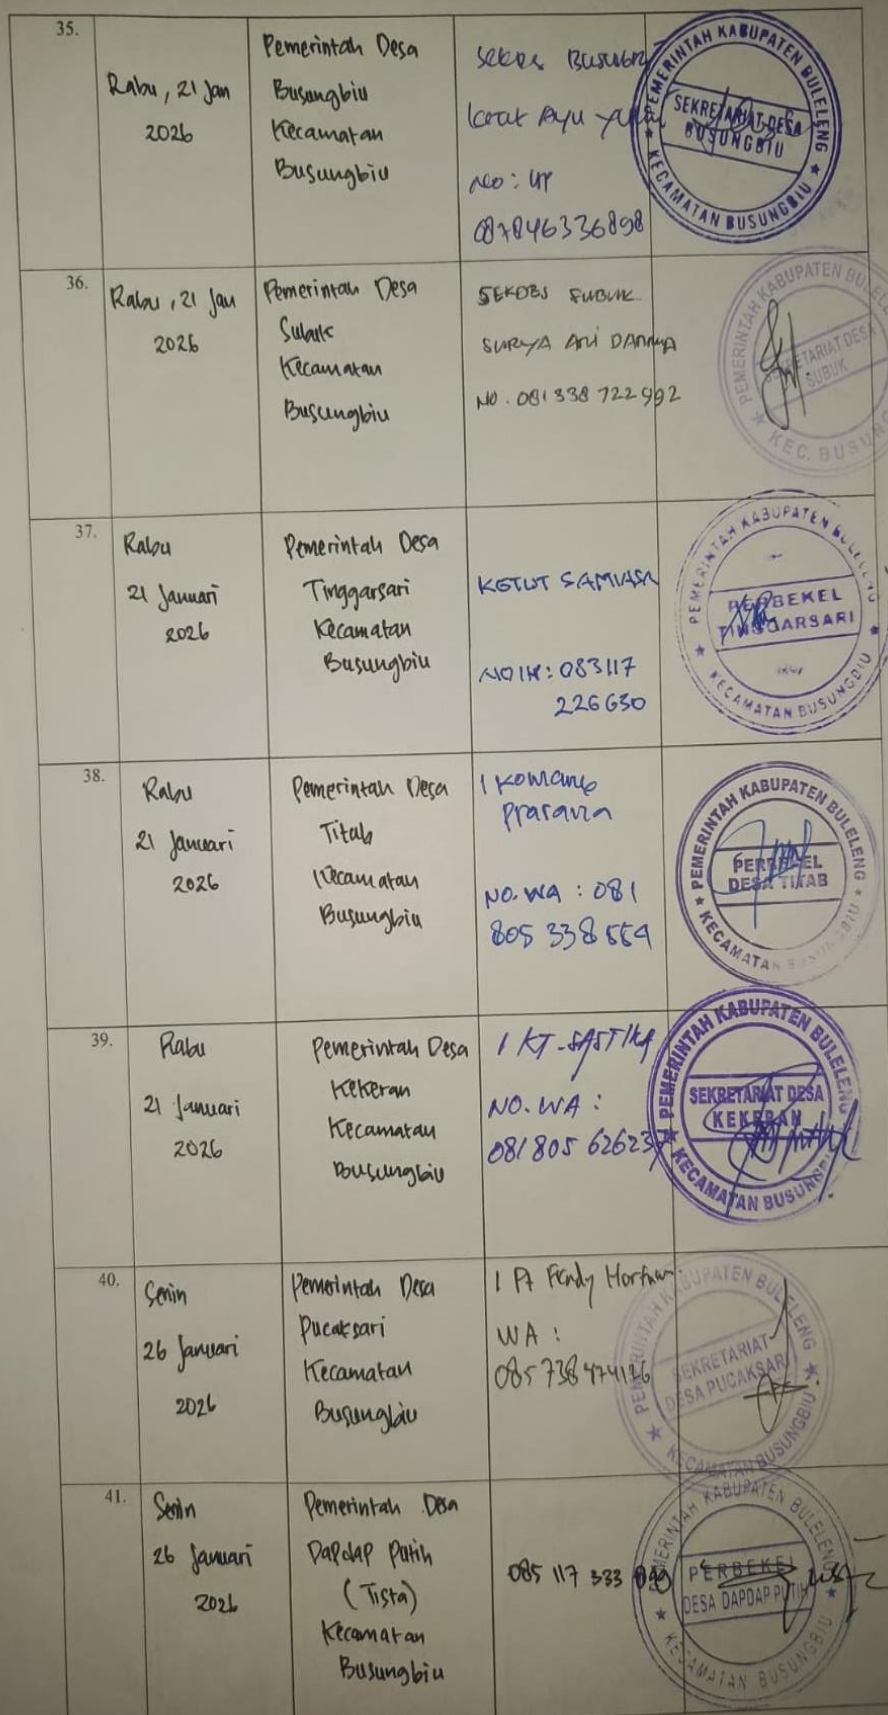 35.
Rabu, 21 Jan
2026
Pemerintah Desa
Busungbiu
Kecamatan
Busungbiu
Sekdes Busungbiu
Ketut Ayu
No : HP
087846336898
PEMERINTAH KABUPATEN BULELENG
SEKRETARIAT DESA
BUSUNGBIU
KECAMATAN BUSUNGBIU
36.
Rabu, 21 Jan
2026
Pemerintah Desa
Subuk
Kecamatan
Busungbiu
SEKDES SUBUK
SURYA ARI
NO. 081 338 722 992
PEMERINTAH KABUPATEN BULELENG
SEKRETARIAT DESA
SUBUK
KEC. BUSUNGBIU
37.
Rabu
21 Januari
2026
Pemerintah Desa
Tinggarsari
Kecamatan
Busungbiu
KETUT SAMIASA
NO HP: 083117
226630
PEMERINTAH KABUPATEN BULELENG
PERBEKEL
TINGGARSARI
KECAMATAN BUSUNGBIU
38.
Rabu
21 Januari
2026
Pemerintah Desa
Titab
Kecamatan
Busungbiu
I Komang
NO. WA : 081
805 338 554
PEMERINTAH KABUPATEN BULELENG
PERBEKEL
DESA TITAB
KECAMATAN BUSUNGBIU
39.
Rabu
21 Januari
2026
Pemerintah Desa
Kekeran
Kecamatan
Busungbiu
I KT. SASTIKA
NO. WA :
081 805 626237
PEMERINTAH KABUPATEN BULELENG
SEKRETARIAT DESA
KEKERAN
KECAMATAN BUSUNGBIU
40.
Senin
26 Januari
2026
Pemerintah Desa
Pucaksari
Kecamatan
Busungbiu
I Pt Fendy
WA :
085 738 474126
PEMERINTAH KABUPATEN BULELENG
SEKRETARIAT
DESA PUCAKSARI
KECAMATAN BUSUNGBIU
41.
Senin
26 Januari
2026
Pemerintah Desa
Dapdap Putih
(Tista)
Kecamatan
Busungbiu
085 117 333
PEMERINTAH KABUPATEN BULELENG
PERBEKEL
DESA DAPDAP PUTIH
KECAMATAN BUSUNGBIU